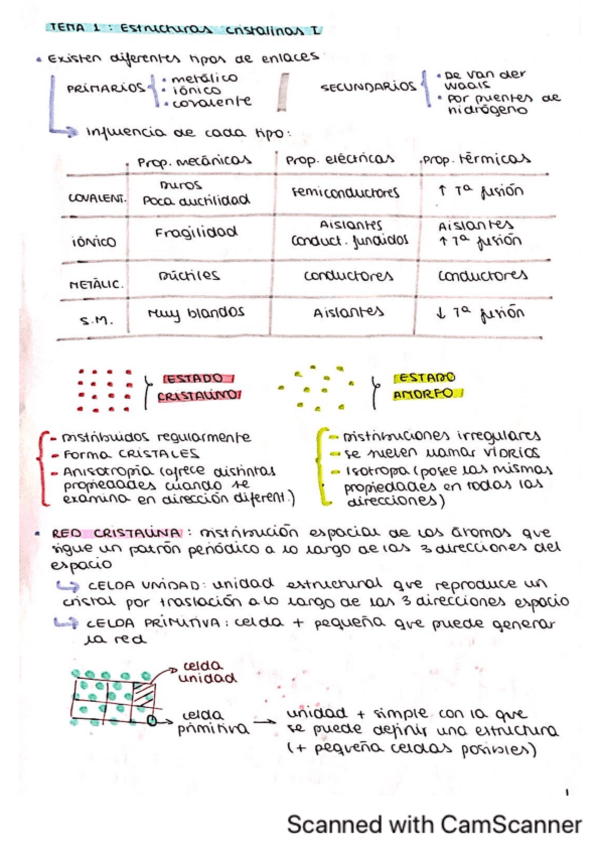 TEMA 1 : Estructuras cristalinas I
• Existen diferentes tipos de enlaces
PRIMARIOS
• metálico
• iónico
• covalente
SECUNDARIOS
• De van der
waals
• Por puentes de
hidrógeno
Influencia de cada tipo:
Prop. mecánicas Prop. eléctricas Prop. térmicas
COVALENT. Duros
Poca ductilidad Semiconductores ↑ Tª fusión
IÓNICO Fragilidad Aislantes
Conduct. fundidos Aislantes
↑ Tª fusión
METÁLIC. Dúctiles Conductores Conductores
S.M. Muy blandos Aislantes ↓ Tª fusión
ESTADO
CRISTALINO
ESTADO
AMORFO
- Distribuidos regularmente
- Forma CRISTALES
- Anisotropía (ofrece distintas
propiedades cuando se
examina en dirección diferent.)
- Distribuciones irregulares
- Se suelen llamar VIDRIOS
- Isótropa (posee las mismas
propiedades en todas las
direcciones)
• RED CRISTALINA : Distribución espacial de los átomos que
sigue un patrón periódico a lo largo de las 3 direcciones del
espacio
↳ CELDA UNIDAD: unidad estructural que reproduce un
cristal por traslación a lo largo de las 3 direcciones espacio
↳ CELDA PRIMITIVA : celda + pequeña que puede generar
la red
celda
unidad
celda
primitiva → unidad + simple con la que
se puede definir una estructura
(+ pequeña celdas posibles)
1
Scanned with CamScanner